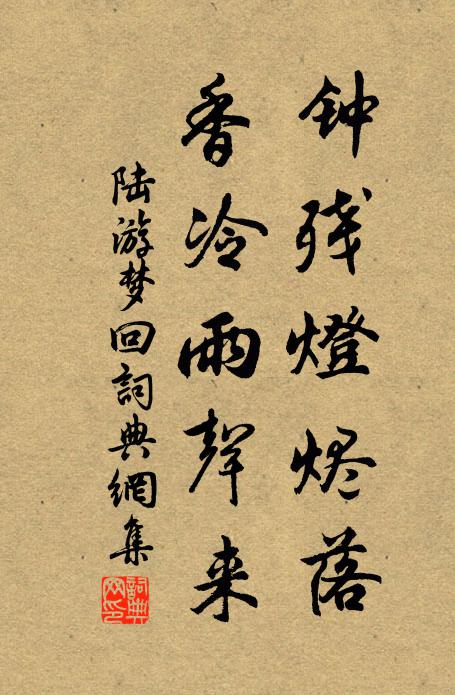 钟残燈烬落
香冷雨聲来
陆游梦回詞典網集
詞典网印